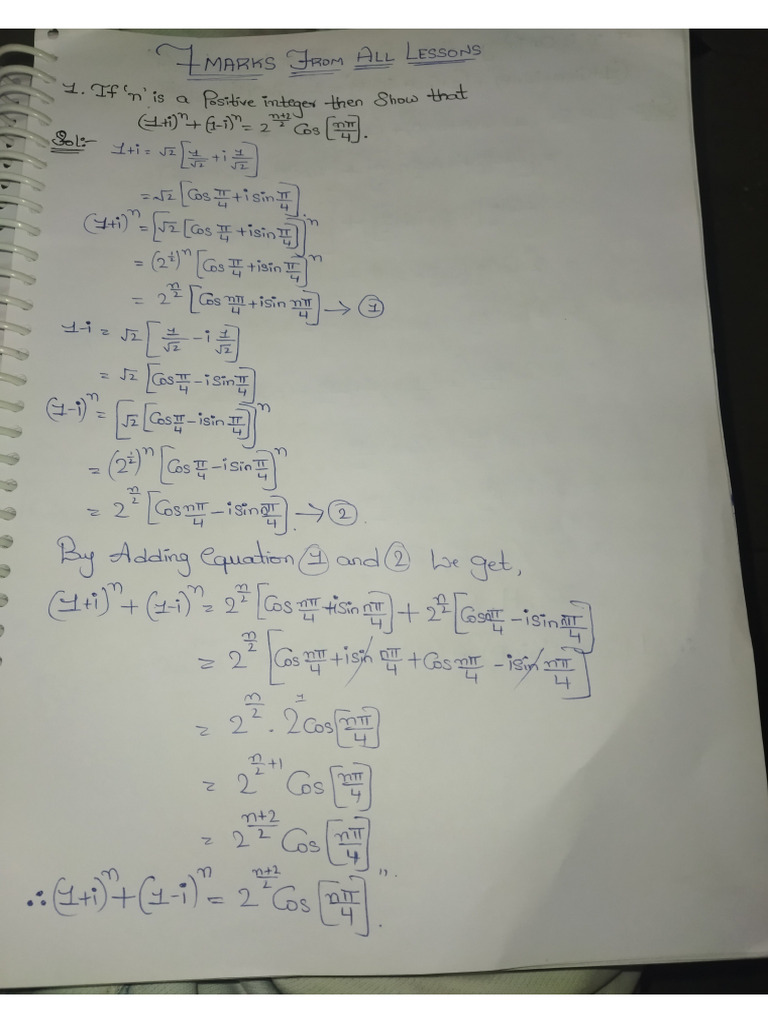 7 MARKS FROM ALL LESSONS
1. If 'n' is a Positive integer then Show that
(1+i)^n + (1-i)^n = 2^(n+2)/2 Cos[nπ/4].
Sol:- 1+i = √2 [1/√2 + i 1/√2]
= √2 [Cos π/4 + i sin π/4].
(1+i)^n = [√2 [Cos π/4 + i sin π/4]]^n
= (2^½)^n [Cos π/4 + i sin π/4]^n
= 2^n/2 [Cos nπ/4 + i sin nπ/4] → ①
1-i = √2 [1/√2 - i 1/√2]
= √2 [Cos π/4 - i sin π/4]
(1-i)^n = [√2 [Cos π/4 - i sin π/4]]^n
= (2^½)^n [Cos π/4 - i sin π/4]^n
= 2^n/2 [Cos nπ/4 - i sin nπ/4]. → ②.
By Adding equation ① and ② we get,
(1+i)^n + (1-i)^n = 2^n/2 [Cos nπ/4 + i sin nπ/4] + 2^n/2 [Cos nπ/4 - i sin nπ/4]
= 2^n/2 [Cos nπ/4 + i sin nπ/4 + Cos nπ/4 - i sin nπ/4]
= 2^n/2 . 2^1 Cos [nπ/4]
= 2^n/2+1 Cos [nπ/4]
= 2^(n+2)/2 Cos [nπ/4]
∴ (1+i)^n + (1-i)^n = 2^(n+2)/2 Cos [nπ/4]".